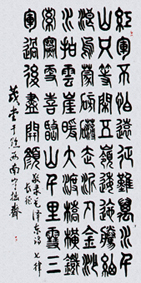 紅軍不怕遠征難萬水千
山只等閑五嶺逶迤騰細
浪烏蒙磅礴走泥丸金沙
水拍雲崖暖大渡橋橫鐵
索寒更喜岷山千里雪三
軍過後盡開顏
敬录毛泽东诗七律
长征